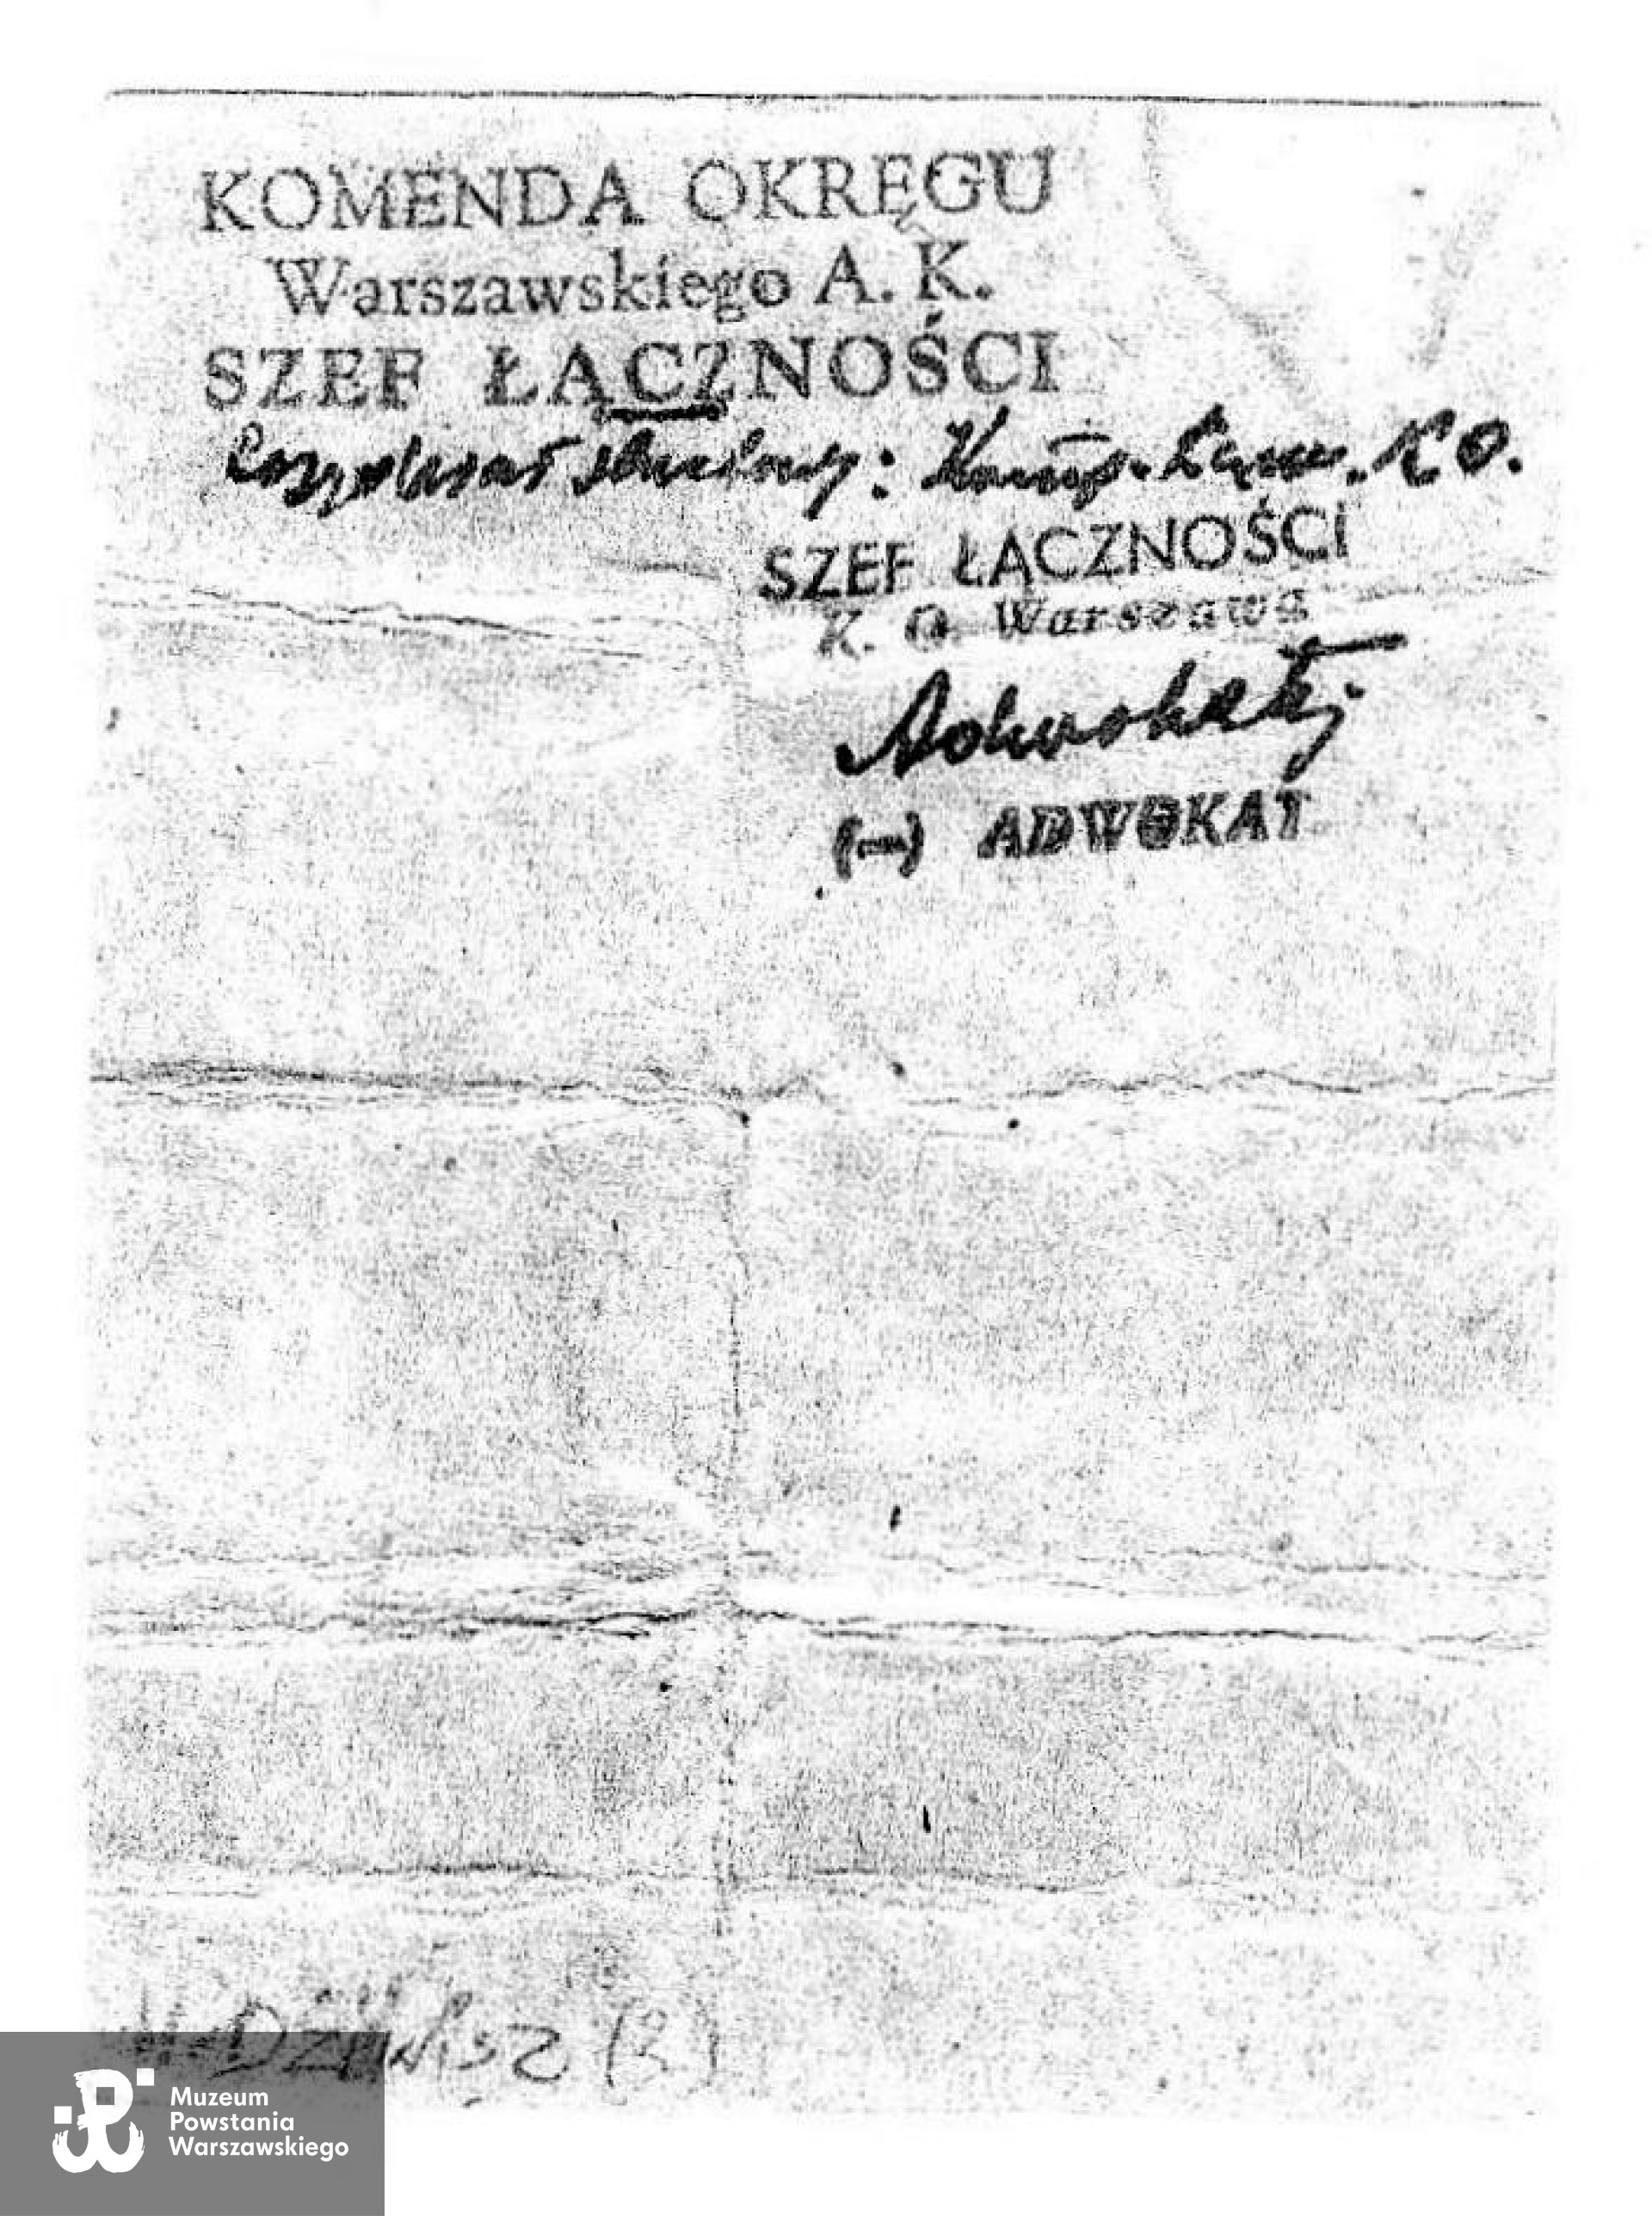 KOMENDA OKRĘGU
Warszawskiego A. K.
SZEF ŁĄCZNOŚCI
Przydział służbowy: Komp. Łączn. K O.
SZEF ŁĄCZNOŚCI
K. O. Warszawa
Adwokat
(—) ADWOKAT
Muzeum
Powstania
Warszawskiego